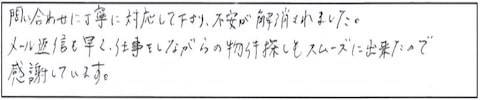 問い合わせに丁寧に対応して下さり、不安が解消されました。
メール返信も早く、仕事をしながらの物件探しもスムーズに出来たので
感謝しています。